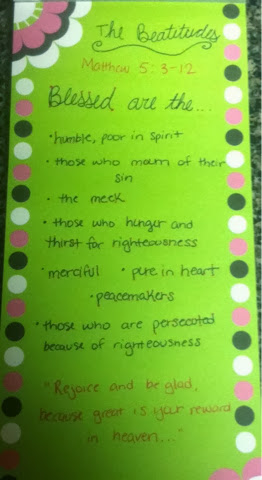 The Beatitudes
Matthew 5:3-12
Blessed are the...
• humble, poor in spirit
• those who mourn of their
sin
• the meek
• those who hunger and
thirst for righteousness
• merciful • pure in heart
• peacemakers
• those who are persecuted
because of righteousness
"Rejoice and be glad,
because great is your reward
in heaven..."